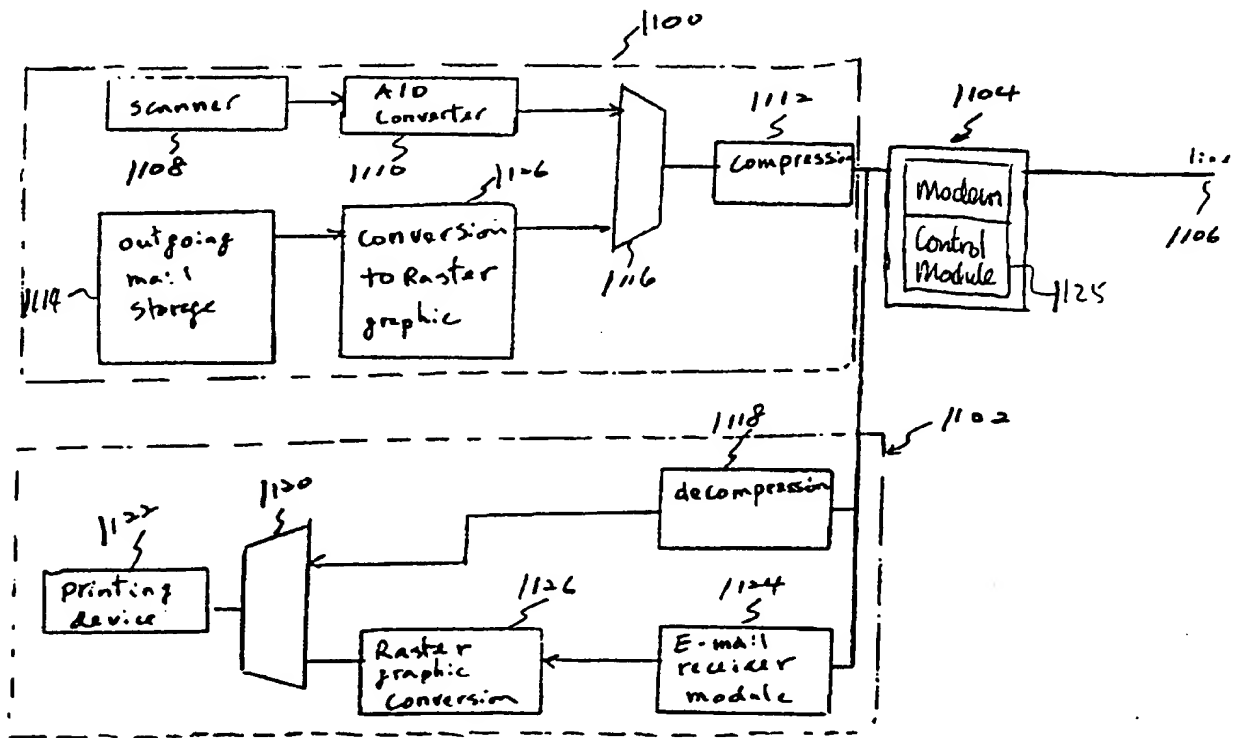 1100
scanner
A/D
Converter
1108
1110
1126
1112
compression
1104
Modem
Control
Module
1125
line
1106
outgoing
mail
storage
1114
Conversion
to Raster
graphic
1116
1102
1118
decompression
1120
1122
printing
device
1126
Raster
graphic
conversion
1124
E-mail
receiver
module